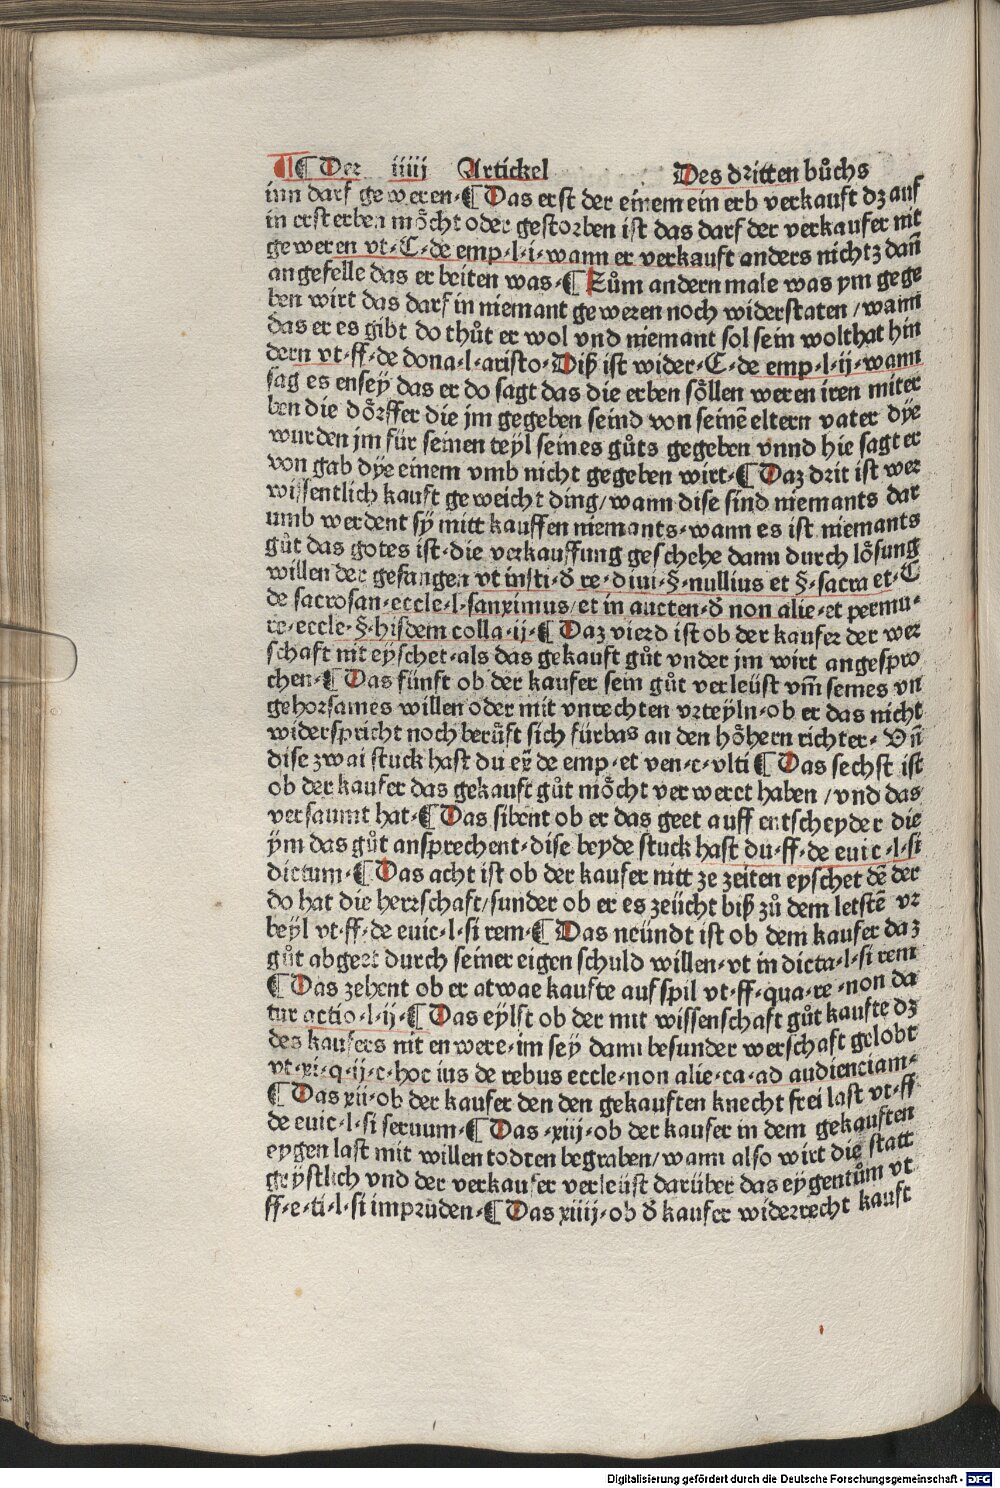 ¶ Der iiij Artickel Des dritten bůchs
im darf geweren. ¶ Das erst der einem ein erb verkauft dz auf
in ersterben mȯcht oder gestorben ist das darf der verkaufer nit
geweren vt. C. de emp. l. i. wann er verkauft anders nichtz dañ
angefelle das er beiten was. ¶ Zům andern male was ym gege
ben wirt das darf in niemant geweren noch widerstaten / wann
das er es gibt do thůt er wol vnd niemant sol sein wolthat hin
dern vt. ff. de dona. l. aristo. Diß ist wider. C. de emp. l. ij. wann
sag es ensey das er do sagt das die erben sȯllen weren iren miter
ben die dȯrffer die jm gegeben seind von seinē eltern vater dye
wurden jm für seinen teyl seines gůts gegeben vnnd hie sagt er
von gab dye einem vmb nicht gegeben wirt. ¶ Daz drit ist wer
wissentlich kauft geweicht ding / wann dise sind niemants dar
umb werdent sÿ mitt kauffen niemants. wann es ist niemants
gůt das gotes ist. die verkauffung geschehe dann durch lȯsung
willen der gefangen vt insti. d̄ re. diui. §. nullius et §. sacra et. C
de sacrosan. eccle. l. sanximus / et in aucten. d̄ non alie. et permu.
re. eccle. §. hisdem colla. ij. ¶ Daz vierd ist ob der kaufer der wer
schaft nit eyschet. als das gekauft gůt vnder jm wirt angespro
chen. ¶ Das fünft ob der kaufer sein gůt verleüst vm̄ seines vn
gehorsames willen oder mit vnrechten vrteyln. ob er das nicht
widerspricht noch berüft sich fürbas an den hȯhern richter. Vn̄
dise zwai stuck hast du ex̄ de emp. et ven. c. vlti ¶ Das sechst ist
ob der kaufer das gekauft gůt mȯcht verweret haben / vnd das
versaumt hat. ¶ Das sibent ob er das geet auff entscheyder die
ÿm das gůt ansprechent. dise beyde stuck hast du. ff. de euic. l. si
dictum. ¶ Das acht ist ob der kaufer nitt ze zeiten eyschet dē der
do hat die herrschaft / sunder ob er es zeücht biß zů dem letstē vr
beyl vt. ff. de euic. l. si rem. ¶ Das neündt ist ob dem kaufer daz
gůt abgeet durch seiner eigen schuld willen. vt in dicta. l. si rem
¶ Das zehent ob er atwae kaufte auf spil vt. ff. qua. re. non da
tur actio. l. ij. ¶ Das eylft ob der mit wissenschaft gůt kaufte dz
des kaufers nit en were. im sey dann besunder werschaft gelobt
vt. xi. q. ij. c. hoc ius de rebus eccle. non alie. ca. ad audienciam.
¶ Das xii. ob der kaufer den den gekauften knecht frei last vt. ff
de euic. l. si seruum. ¶ Das .xiij. ob der kaufer in dem gekauften
eygen last mit willen todten begraben / wann also wirt die statt
geystlich vnd der verkaufer verleüst darüber das eygentům vt
ff. e. ti. l. si impruden. ¶ Das xiiij. ob d̄ kaufer widerrecht kauft
Digitalisierung gefördert durch die Deutsche Forschungsgemeinschaft - DFG